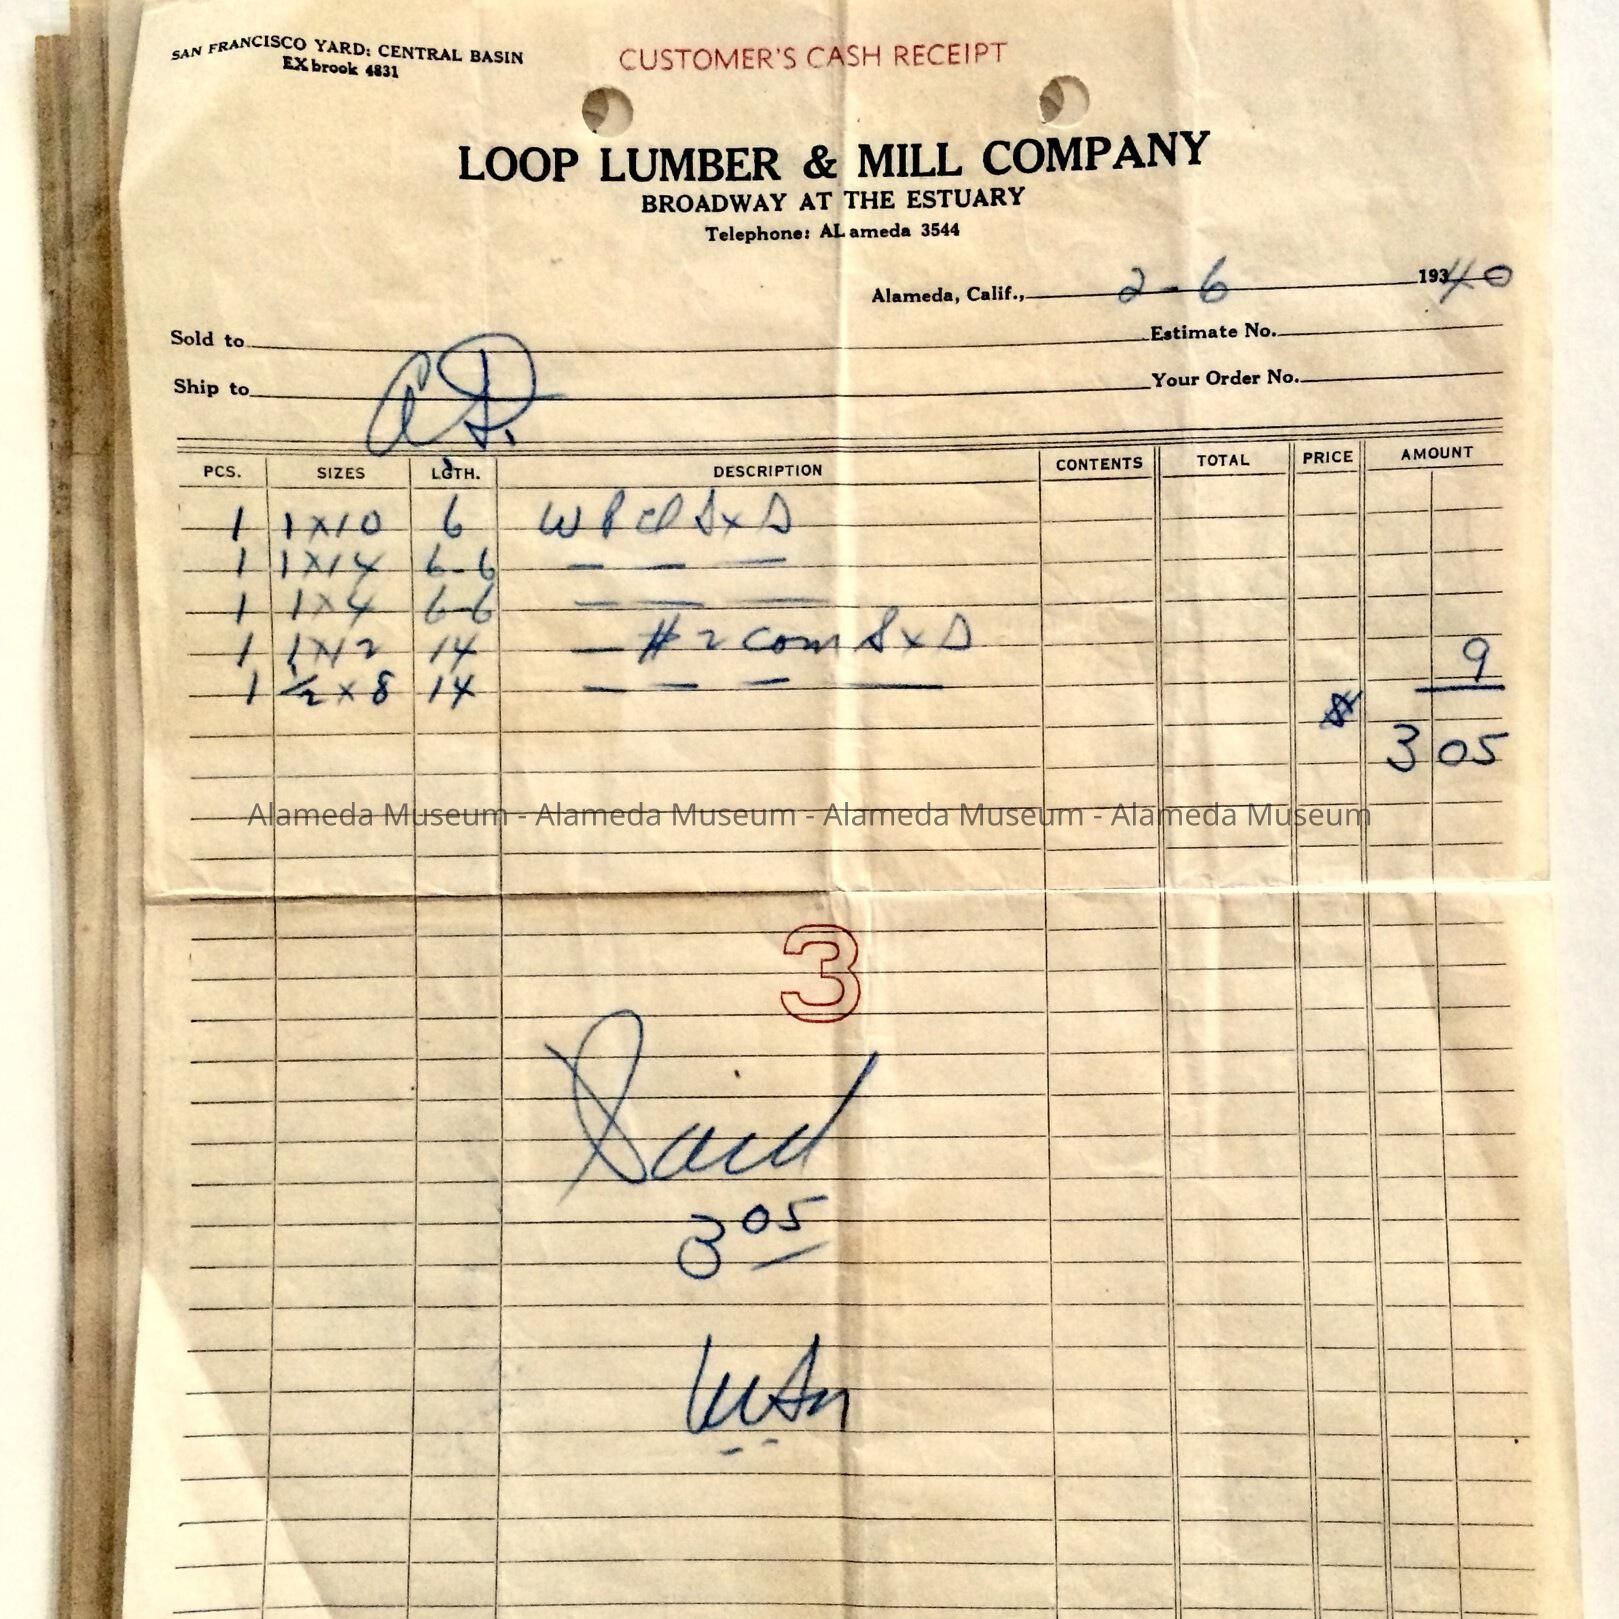 SAN FRANCISCO YARD: CENTRAL BASIN
EXbrook 4831
CUSTOMER'S CASH RECEIPT
LOOP LUMBER & MILL COMPANY
BROADWAY AT THE ESTUARY
Telephone: ALameda 3544
Alameda, Calif., 2-6 19340
Sold to
Estimate No.
Ship to
Your Order No.
PCS. SIZES LGTH. DESCRIPTION CONTENTS TOTAL PRICE AMOUNT
1 1x10 6 W P SxS
1 1x14 6-6 — — —
1 1x4 6-6 — — —
1 1x12 14 — #2 com SxS
1 ½x8 14 — — — — 9
$ 3 05
Alameda Museum - Alameda Museum - Alameda Museum - Alameda Museum
3
Paid
3 05